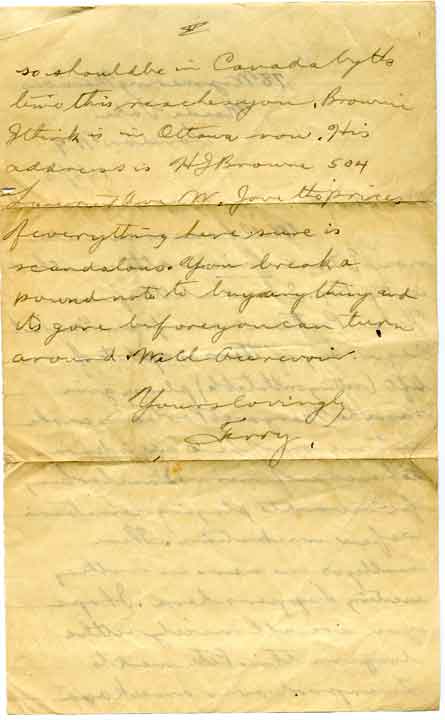 V
so should be in Canada by the
time this reaches you. Brownie
I think is in Ottawa now. His
address is H J Browne 504
Ave W. Jove the prices
of everything here sure is
scandalous. You break a
pound note to buy anything and
its gone before you can turn
around. Well Aurevoir.
Yours lovingly
Terry.